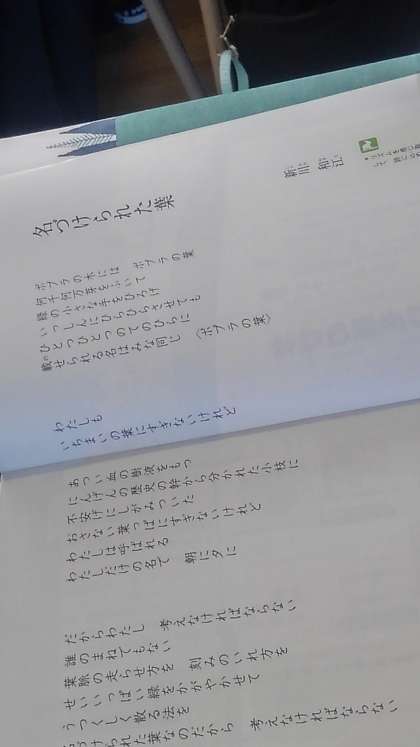 名づけられた葉
新川 和江
ポプラの木には ポプラの葉
何千何万芽をふいて
緑の小さな手をひろげ
いっしんにひらひらさせても
ひとつひとつのてのひらに
載せられる名はみな同じ 〈ポプラの葉〉
わたしも
いちまいの葉にすぎないけれど
あつい血の樹液をもつ
にんげんの歴史の幹から分かれた小枝に
不安げにしがみついた
おさない葉っぱにすぎないけれど
わたしは呼ばれる
わたしだけの名で 朝に夕に
だからわたし 考えなければならない
誰のまねでもない
葉脈の走らせ方を 刻みのいれ方を
せいいっぱい緑をかがやかせて
うつくしく散る法を
づけられた葉なのだから 考えなければならない